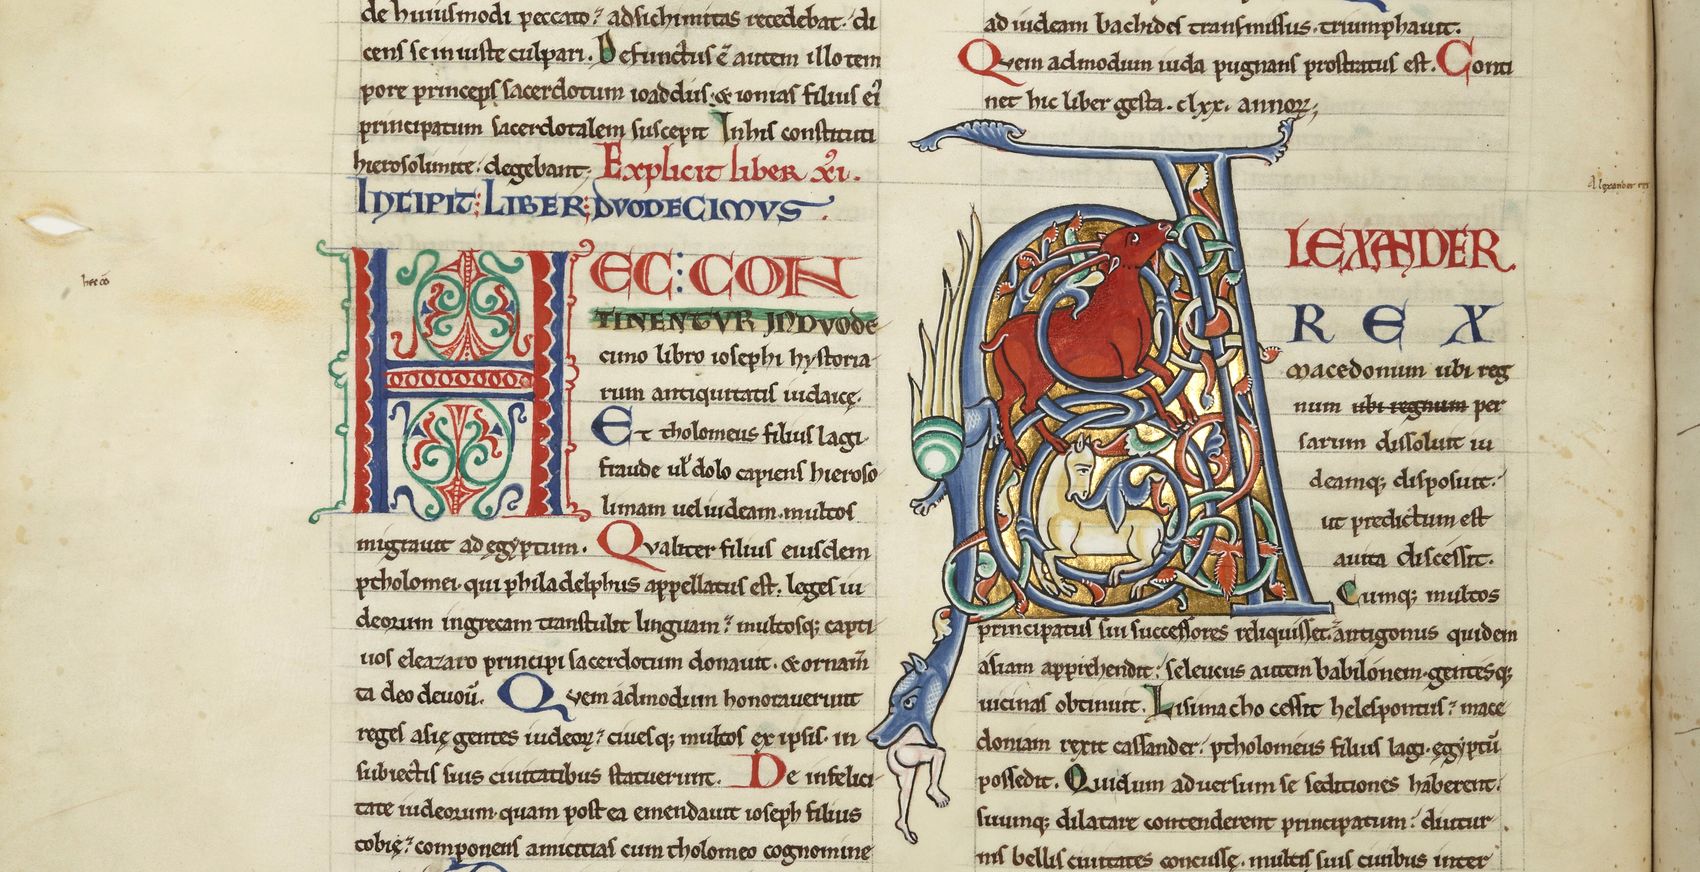 de huiusmodi peccato? ad sichimitas recedebat. di
cens se iniuste culpari. Defunctus ē autem illo tem
pore princeps sacerdotum ioaddus. & ionias filius ei᾽
principatum sacerdotalem suscepit. In his constituti
hierosolimite. degebant. Explicit liber xi.
INCIPIT: LIBER: DVODECIMVS.
hec cō
HEC: CON
TINENTVR IN DVODE
cimo libro iosephi hystoria
rum antiquitatis iudaicę.
Et tholomeus filius lagi.
fraude ul̓ dolo capiens hieroso
limam uel iudeam. multos
migrauit ad egyptum. Qualiter filius eiusdem
ptholomei. qui philadelphus appellatus est. leges iu
deorum in grecam transtulit linguam? multosq; capti
uos eleazaro principi sacerdotum donauit. & ornam̄
ta deo deuou̅. Quem admodum honorauerunt
reges asię gentes iudeoꝝ? ciuesq; multos ex ipsis. in
subiectis suis ciuitatibus statuerunt. De infelici
tate iudeorum. quam post ea emendauit ioseph filius
tobię? componens amicitias cum tholomeo cognomine
ad iudeam bachides transmissus. triumphauit.
Quem admodum iuda pugnans prostratus est. Conti
net hic liber gesta. clxx. annoꝝ,
Alexander rex
ALEXANDER.
REX
macedonum ubi reg
num ubi regnum per
sarum dissoluit iu
deamq; disposuit.
ut predictum est
auita discessit.
Cumq; multos
principatus sui successores reliquisset. antigonus quidem
asiam apprehendit? seleucus autem babilonem. gentesq;
uicinas obtinuit. Lisimacho cessit helespontus? mace
doniam rexit cassander. ptholomeus filius lagi. egyptū
possedit. Qui dum aduersum se seditiones haberent.
suumq; dilatare contenderent principatum? diutur
nis bellis ciuitates concussę. multis suis ciuibus inter